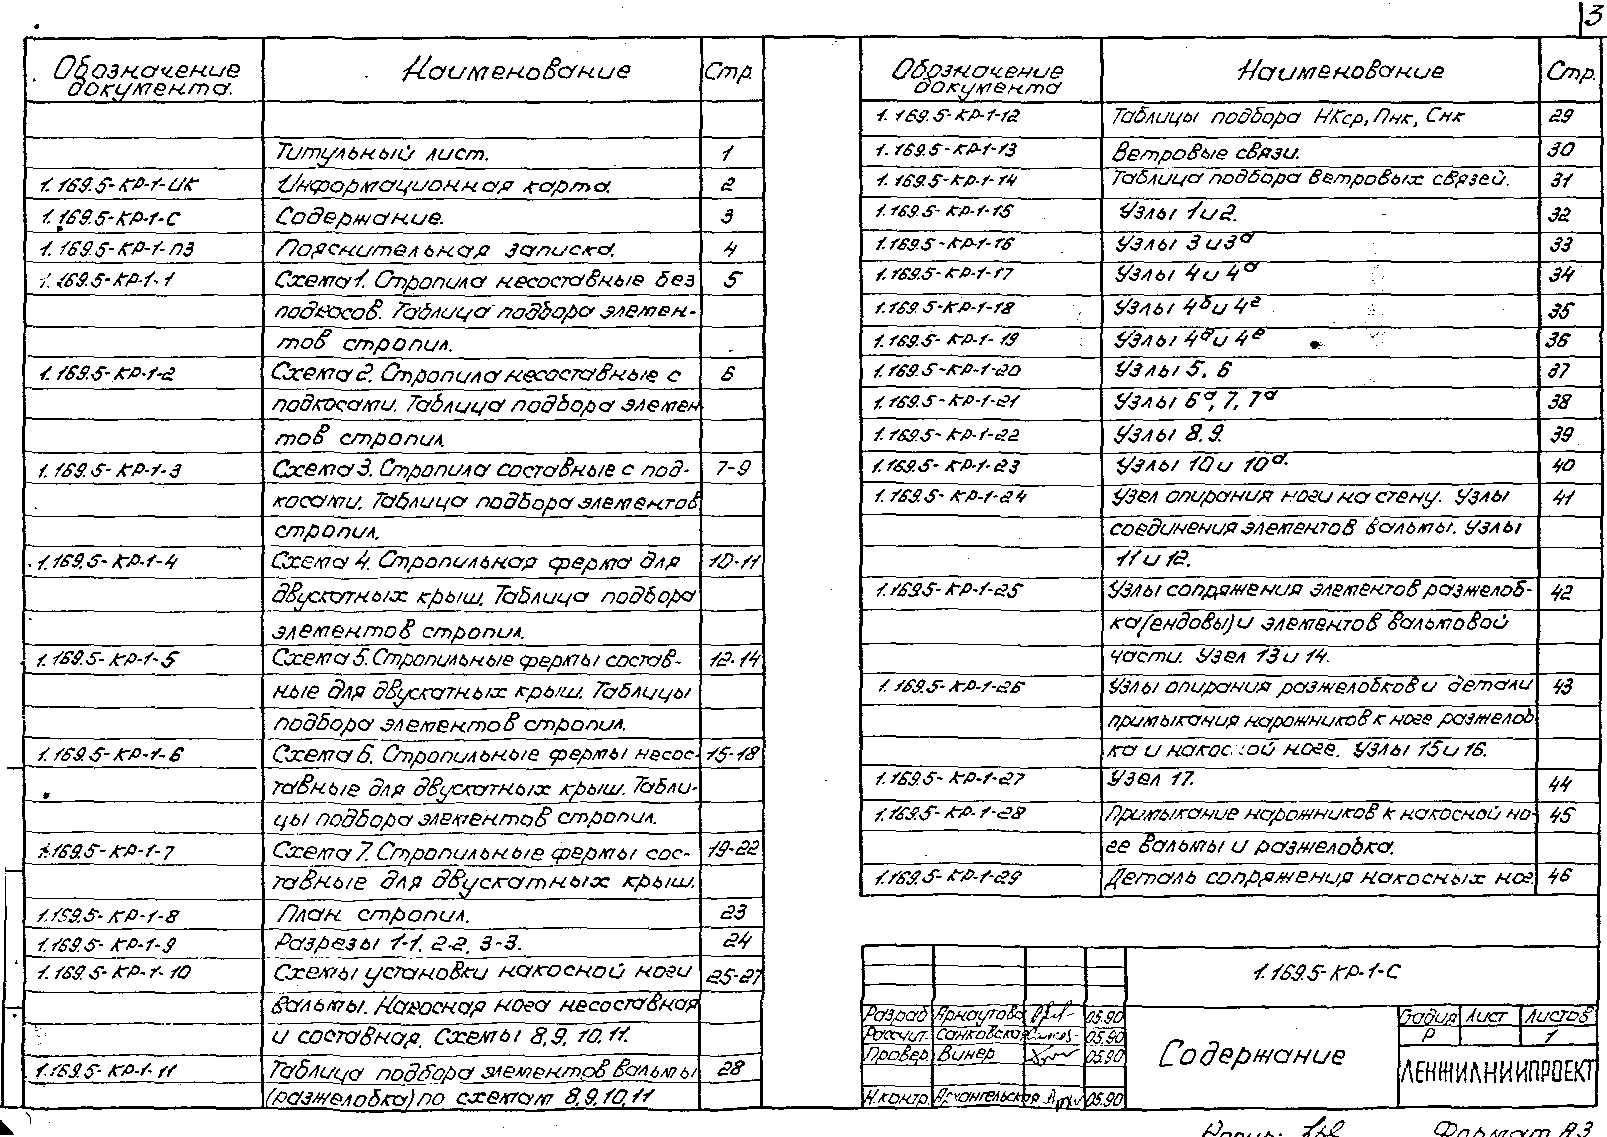 3
Обозначение документа.	Наименование	Стр.
Титульный лист.	1
1.169.5-КР-1-ИК	Информационная карта.	2
1.169.5-КР-1-С	Содержание.	3
1.169.5-КР-1-ПЗ	Пояснительная записка.	4
1.169.5-КР-1-1	Схема 1. Стропила несоставные без	5
подкосов. Таблица подбора элемен-
тов стропил.
1.169.5-КР-1-2	Схема 2. Стропила несоставные с	6
подкосами. Таблица подбора элемен
тов стропил.
1.169.5-КР-1-3	Схема 3. Стропила составные с под-	7-9
косами. Таблица подбора элементов
стропил.
1.169.5-КР-1-4	Схема 4. Стропильная ферма для	10-11
двускатных крыш. Таблица подбора
элементов стропил.
1.169.5-КР-1-5	Схема 5. Стропильные фермы состав-	12-14
ные для двускатных крыш. Таблицы
подбора элементов стропил.
1.169.5-КР-1-6	Схема 6. Стропильные фермы несос-	15-18
тавные для двускатных крыш. Табли-
цы подбора элементов стропил.
1.169.5-КР-1-7	Схема 7. Стропильные фермы сос-	19-22
тавные для двускатных крыш.
1.169.5-КР-1-8	План стропил.	23
1.169.5-КР-1-9	Разрезы 1-1, 2-2, 3-3.	24
1.169.5-КР-1-10	Схемы установки накосной ноги	25-27
вальмы. Накосная нога несоставная
и составная. Схемы 8, 9, 10, 11.
1.169.5-КР-1-11	Таблица подбора элементов вальмы	28
(разжелобка) по схемам 8,9,10,11
Обозначение документа	Наименование	Стр.
1.169.5-КР-1-12	Таблицы подбора НКср, Пнк, Снк	29
1.169.5-КР-1-13	Ветровые связи.	30
1.169.5-КР-1-14	Таблица подбора ветровых связей.	31
1.169.5-КР-1-15	Узлы 1 и 2.	32
1.169.5-КР-1-16	Узлы 3 и 3а	33
1.169.5-КР-1-17	Узлы 4 и 4а	34
1.169.5-КР-1-18	Узлы 4б и 4г	35
1.169.5-КР-1-19	Узлы 4д и 4е	36
1.169.5-КР-1-20	Узлы 5, 6	37
1.169.5-КР-1-21	Узлы 6а, 7, 7а	38
1.169.5-КР-1-22	Узлы 8, 9.	39
1.169.5-КР-1-23	Узлы 10 и 10а.	40
1.169.5-КР-1-24	Узел опирания ноги на стену. Узлы	41
соединения элементов вальмы. Узлы
11 и 12.
1.169.5-КР-1-25	Узлы сопряжения элементов разжелоб-	42
ка (ендовы) и элементов вальмовой
части. Узел 13 и 14.
1.169.5-КР-1-26	Узлы опирания разжелобков и детали	43
примыкания нарожников к ноге разжелоб
ка и накосной ноге. Узлы 15 и 16.
1.169.5-КР-1-27	Узел 17.	44
1.169.5-КР-1-28	Примыкание нарожников к накосной но-	45
ге вальмы и разжелобка.
1.169.5-КР-1-29	Деталь сопряжения накосных ног.	46
1.169.5-КР-1-С
Разраб. Арнаутова 05.90
Рассчит. Санковская 05.90
Провер. Винер 05.90
Н.контр. Архангельская 05.90
Содержание
Стадия Лист Листов
Р 1
ЛЕНЖИЛНИИПРОЕКТ
Формат А3